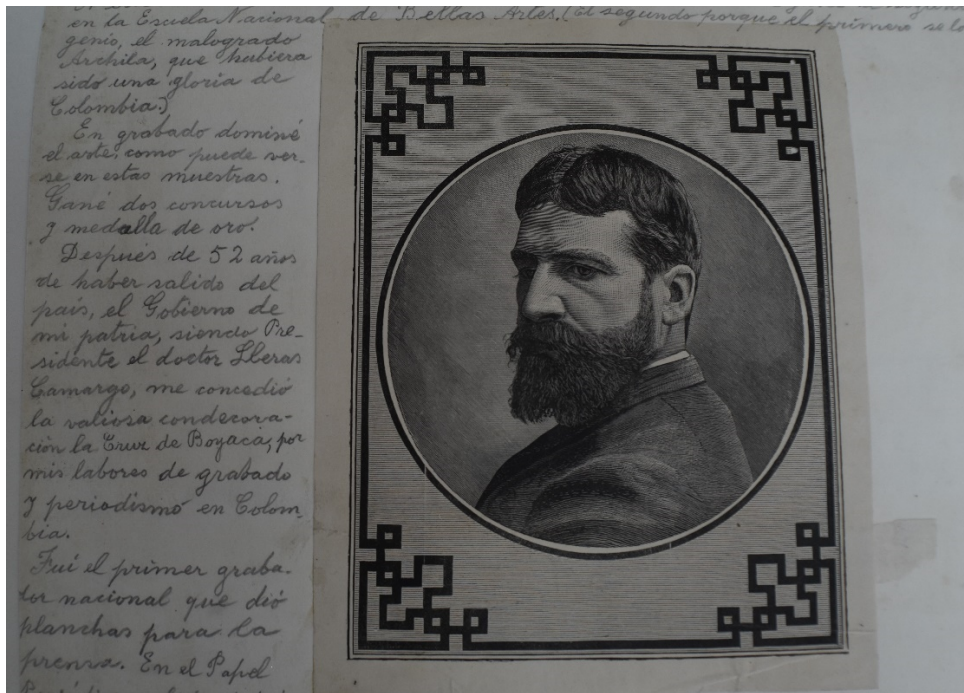 en la Escuela Nacional de Bellas Artes. (El segundo porque el primero se lo
genio, el malogrado
Archila, que hubiera
sido una gloria de
Colombia.)
En grabado dominé
el arte, como puede ver-
se en estas muestras.
Gané dos concursos
y medalla de oro.
Después de 52 años
de haber salido del
país, el Gobierno de
mi patria, siendo Pre-
sidente el doctor Lleras
Camargo, me concedió
la valiosa condecora-
ción la Cruz de Boyacá, por
mis labores de grabado
y periodismo en Colom-
bia.
Fuí el primer graba-
dor nacional que dió
planchas para la
prensa. En el Papel